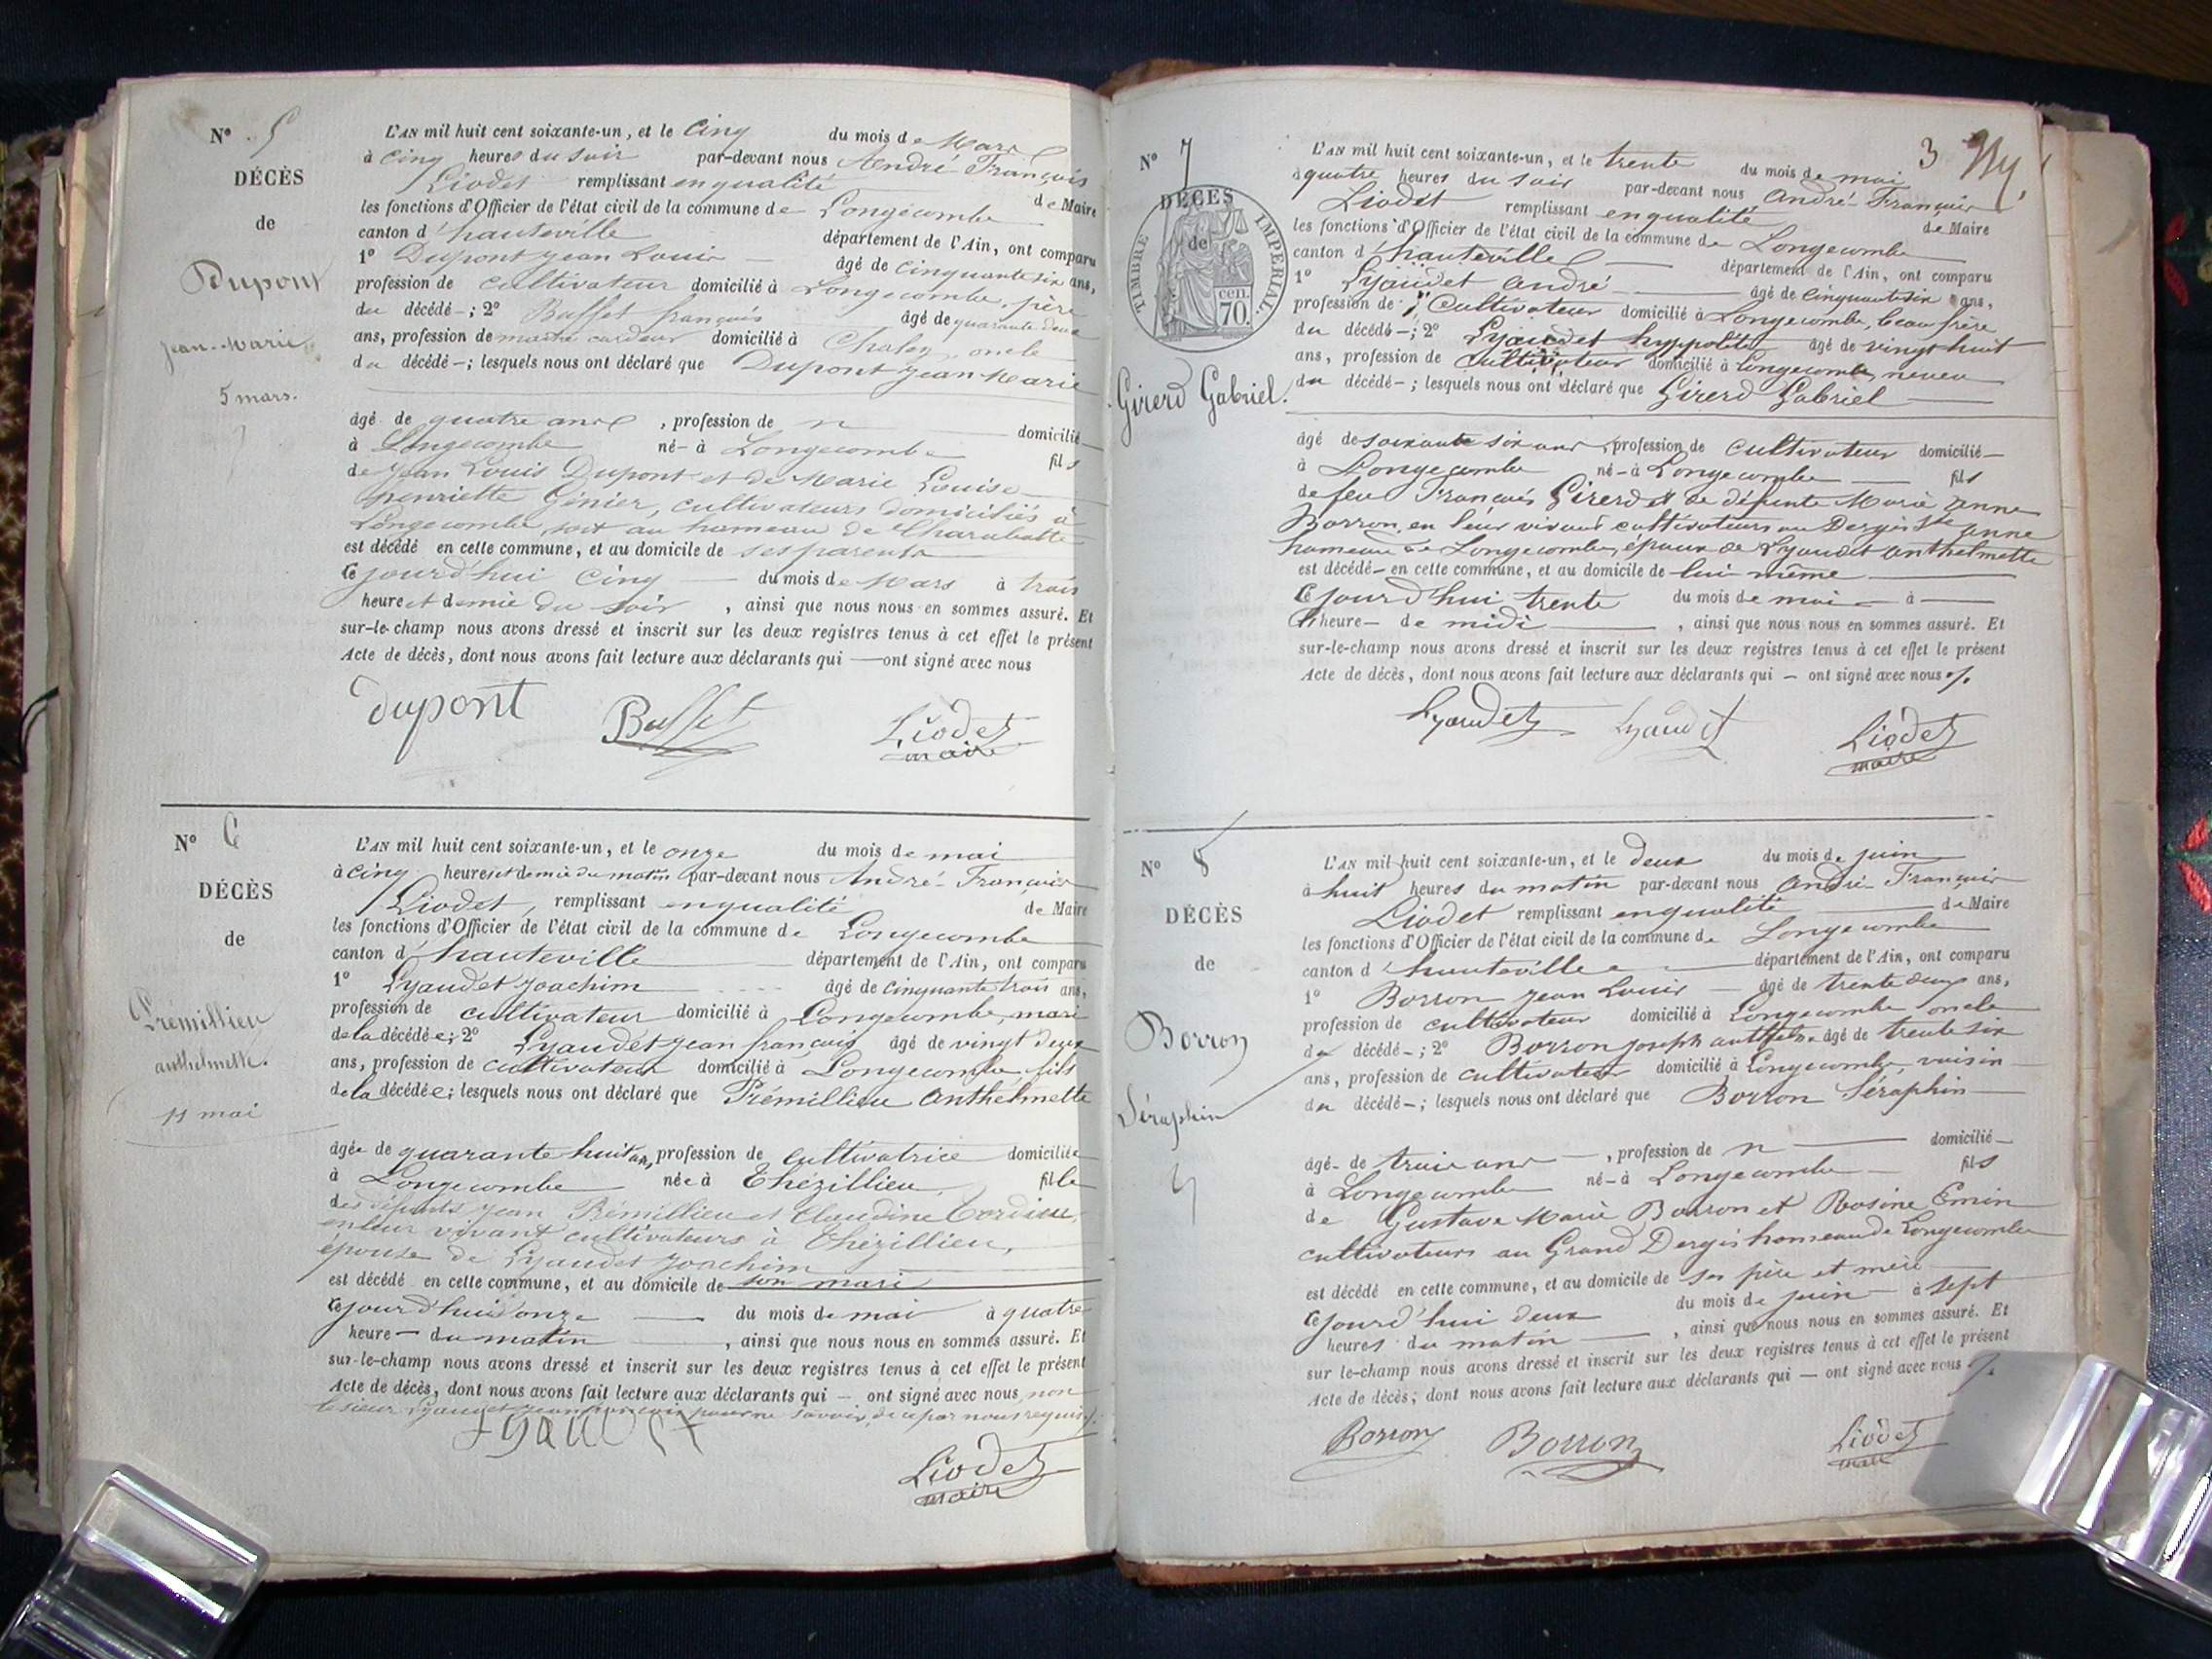 N° 5
DÉCÈS
de
Dupont
Jean-Marie
5 mars.
L'AN mil huit cent soixante-un, et le cinq du mois de Mars
à cinq heures du soir par-devant nous André-François
Liodet remplissant en qualité de Maire
les fonctions d'Officier de l'état civil de la commune de Longecombe
canton d'hauteville département de l'Ain, ont comparu
1° Dupont Jean Louis âgé de cinquante six ans,
profession de cultivateur domicilié à Longecombe, père
du décédé-; 2° Buffet françois âgé de quarante deux
ans, profession de maitre cardeur domicilié à Chaley, oncle
du décédé-; lesquels nous ont déclaré que Dupont Jean Marie
âgé de quatre ans, profession de n domicilié
à Longecombe né-à Longecombe fils
de Jean Louis Dupont et de Marie Louise
henriette Génier, cultivateurs domiciliés à
Longecombe, soit au hameau de Charabotte
est décédé en cette commune, et au domicile de ses parents
Cejourd'hui cinq du mois de Mars à trois
heure et demie du soir, ainsi que nous nous en sommes assuré. Et
sur-le-champ nous avons dressé et inscrit sur les deux registres tenus à cet effet le présent
Acte de décès, dont nous avons fait lecture aux déclarants qui — ont signé avec nous
dupont Buffet Liodet
maire
N° 6
DÉCÈS
de
Prémillieu
anthelmette.
11 mai
L'AN mil huit cent soixante-un, et le onze du mois de mai
à cinq heures et demie du matin par-devant nous André-François
Liodet, remplissant en qualité de Maire
les fonctions d'Officier de l'état civil de la commune de Longecombe
canton d'hauteville département de l'Ain, ont comparu
1° Lyaudet Joachim âgé de cinquante trois ans,
profession de cultivateur domicilié à Longecombe, mari
de la décédée; 2° Lyaudet Jean françois âgé de vingt deux
ans, profession de cultivateur domicilié à Longecombe fils
de la décédée; lesquels nous ont déclaré que Prémillieu Anthelmette
âgée de quarante huit ans, profession de cultivatrice domiciliée
à Longecombe née à Thézillieu, fille
des défunts Jean Prémillieu et Claudine
en leur vivant cultivateurs à Thézillieu,
épouse de Lyaudet Joachim
est décédé en cette commune, et au domicile de son mari
Cejourd'hui onze du mois de mai à quatre
heure — du matin, ainsi que nous nous en sommes assuré. Et
sur-le-champ nous avons dressé et inscrit sur les deux registres tenus à cet effet le présent
Acte de décès, dont nous avons fait lecture aux déclarants qui — ont signé avec nous, non
le sieur Lyaudet Jean françois pour ne savoir, de ce par nous requis /.
Lyaudet
Liodet
maire
3
N° 7
DÉCÈS
de
TIMBRE IMPÉRIAL
cen.
70.
Girerd Gabriel.
L'AN mil huit cent soixante-un, et le trente du mois de mai
à quatre heures du soir par-devant nous André-François
Liodet remplissant en qualité de Maire
les fonctions d'Officier de l'état civil de la commune de Longecombe
canton d'hauteville département de l'Ain, ont comparu
1° Lyaudet André âgé de cinquante six ans,
profession de cultivateur domicilié à Longecombe, beau frère
du décédé-; 2° Lyaudet hyppolite âgé de vingt huit
ans, profession de cultivateur domicilié à Longecombe, neveu
du décédé-; lesquels nous ont déclaré que Girerd Gabriel
âgé de soixante six ans, profession de cultivateur domicilié-
à Longecombe né-à Longecombe fils
de feu François Girerd et de défunte Marie Anne
Borron, en leur vivant cultivateurs au Dergis Ste Anne
hameau de Longecombe, époux de Lyaudet anthelmette
est décédé- en cette commune, et au domicile de lui même
Cejourd'hui trente du mois de mai à —
heure — de midi, ainsi que nous nous en sommes assuré. Et
sur-le-champ nous avons dressé et inscrit sur les deux registres tenus à cet effet le présent
Acte de décès, dont nous avons fait lecture aux déclarants qui — ont signé avec nous ./.
Lyaudet Lyaudet Liodet
maire
N° 8
DÉCÈS
de
Borron
Séraphin
L'AN mil huit cent soixante-un, et le deux du mois de juin
à huit heures du matin par-devant nous André-François
Liodet remplissant en qualité de Maire
les fonctions d'Officier de l'état civil de la commune de Longecombe
canton d'hauteville département de l'Ain, ont comparu
1° Borron Jean Louis âgé de trente deux ans,
profession de cultivateur domicilié à Longecombe oncle
du décédé-; 2° Borron Joseph anthelme âgé de trente six
ans, profession de cultivateur domicilié à Longecombe, voisin
du décédé-; lesquels nous ont déclaré que Borron Séraphin
âgé- de trois ans, profession de n domicilié-
à Longecombe né-à Longecombe fils
de Gustave Marie Borron et Rosine Emin
cultivateurs au Grand Dergis hameau de Longecombe
est décédé en cette commune, et au domicile de ses père et mère
Cejourd'hui deux du mois de juin à sept
heures du matin, ainsi que nous nous en sommes assuré. Et
sur le-champ nous avons dressé et inscrit sur les deux registres tenus à cet effet le présent
Acte de décès; dont nous avons fait lecture aux déclarants qui — ont signé avec nous ./.
Borron Borron Liodet
maire